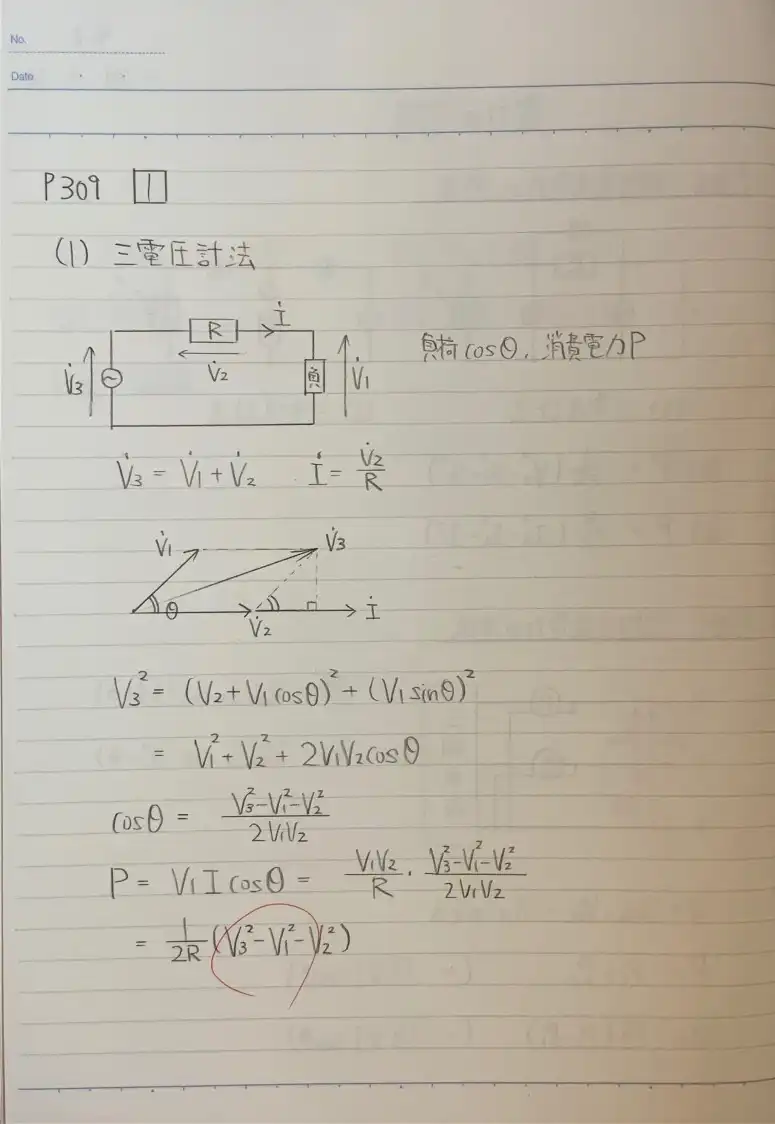 No.
Date
P309 1
(1) 三電圧計法
R İ
V̇3 V̇2 負 V̇1 負荷cosθ, 消費電力P
V̇3 = V̇1 + V̇2 İ = V̇2/R
V̇1 V̇3
θ V̇2 İ
V3² = (V2+V1cosθ)² + (V1sinθ)²
= V1² + V2² + 2V1V2cosθ
cosθ = (V3²-V1²-V2²)/(2V1V2)
P = V1Icosθ = V1V2/R · (V3²-V1²-V2²)/(2V1V2)
= 1/2R (V3²-V1²-V2²)